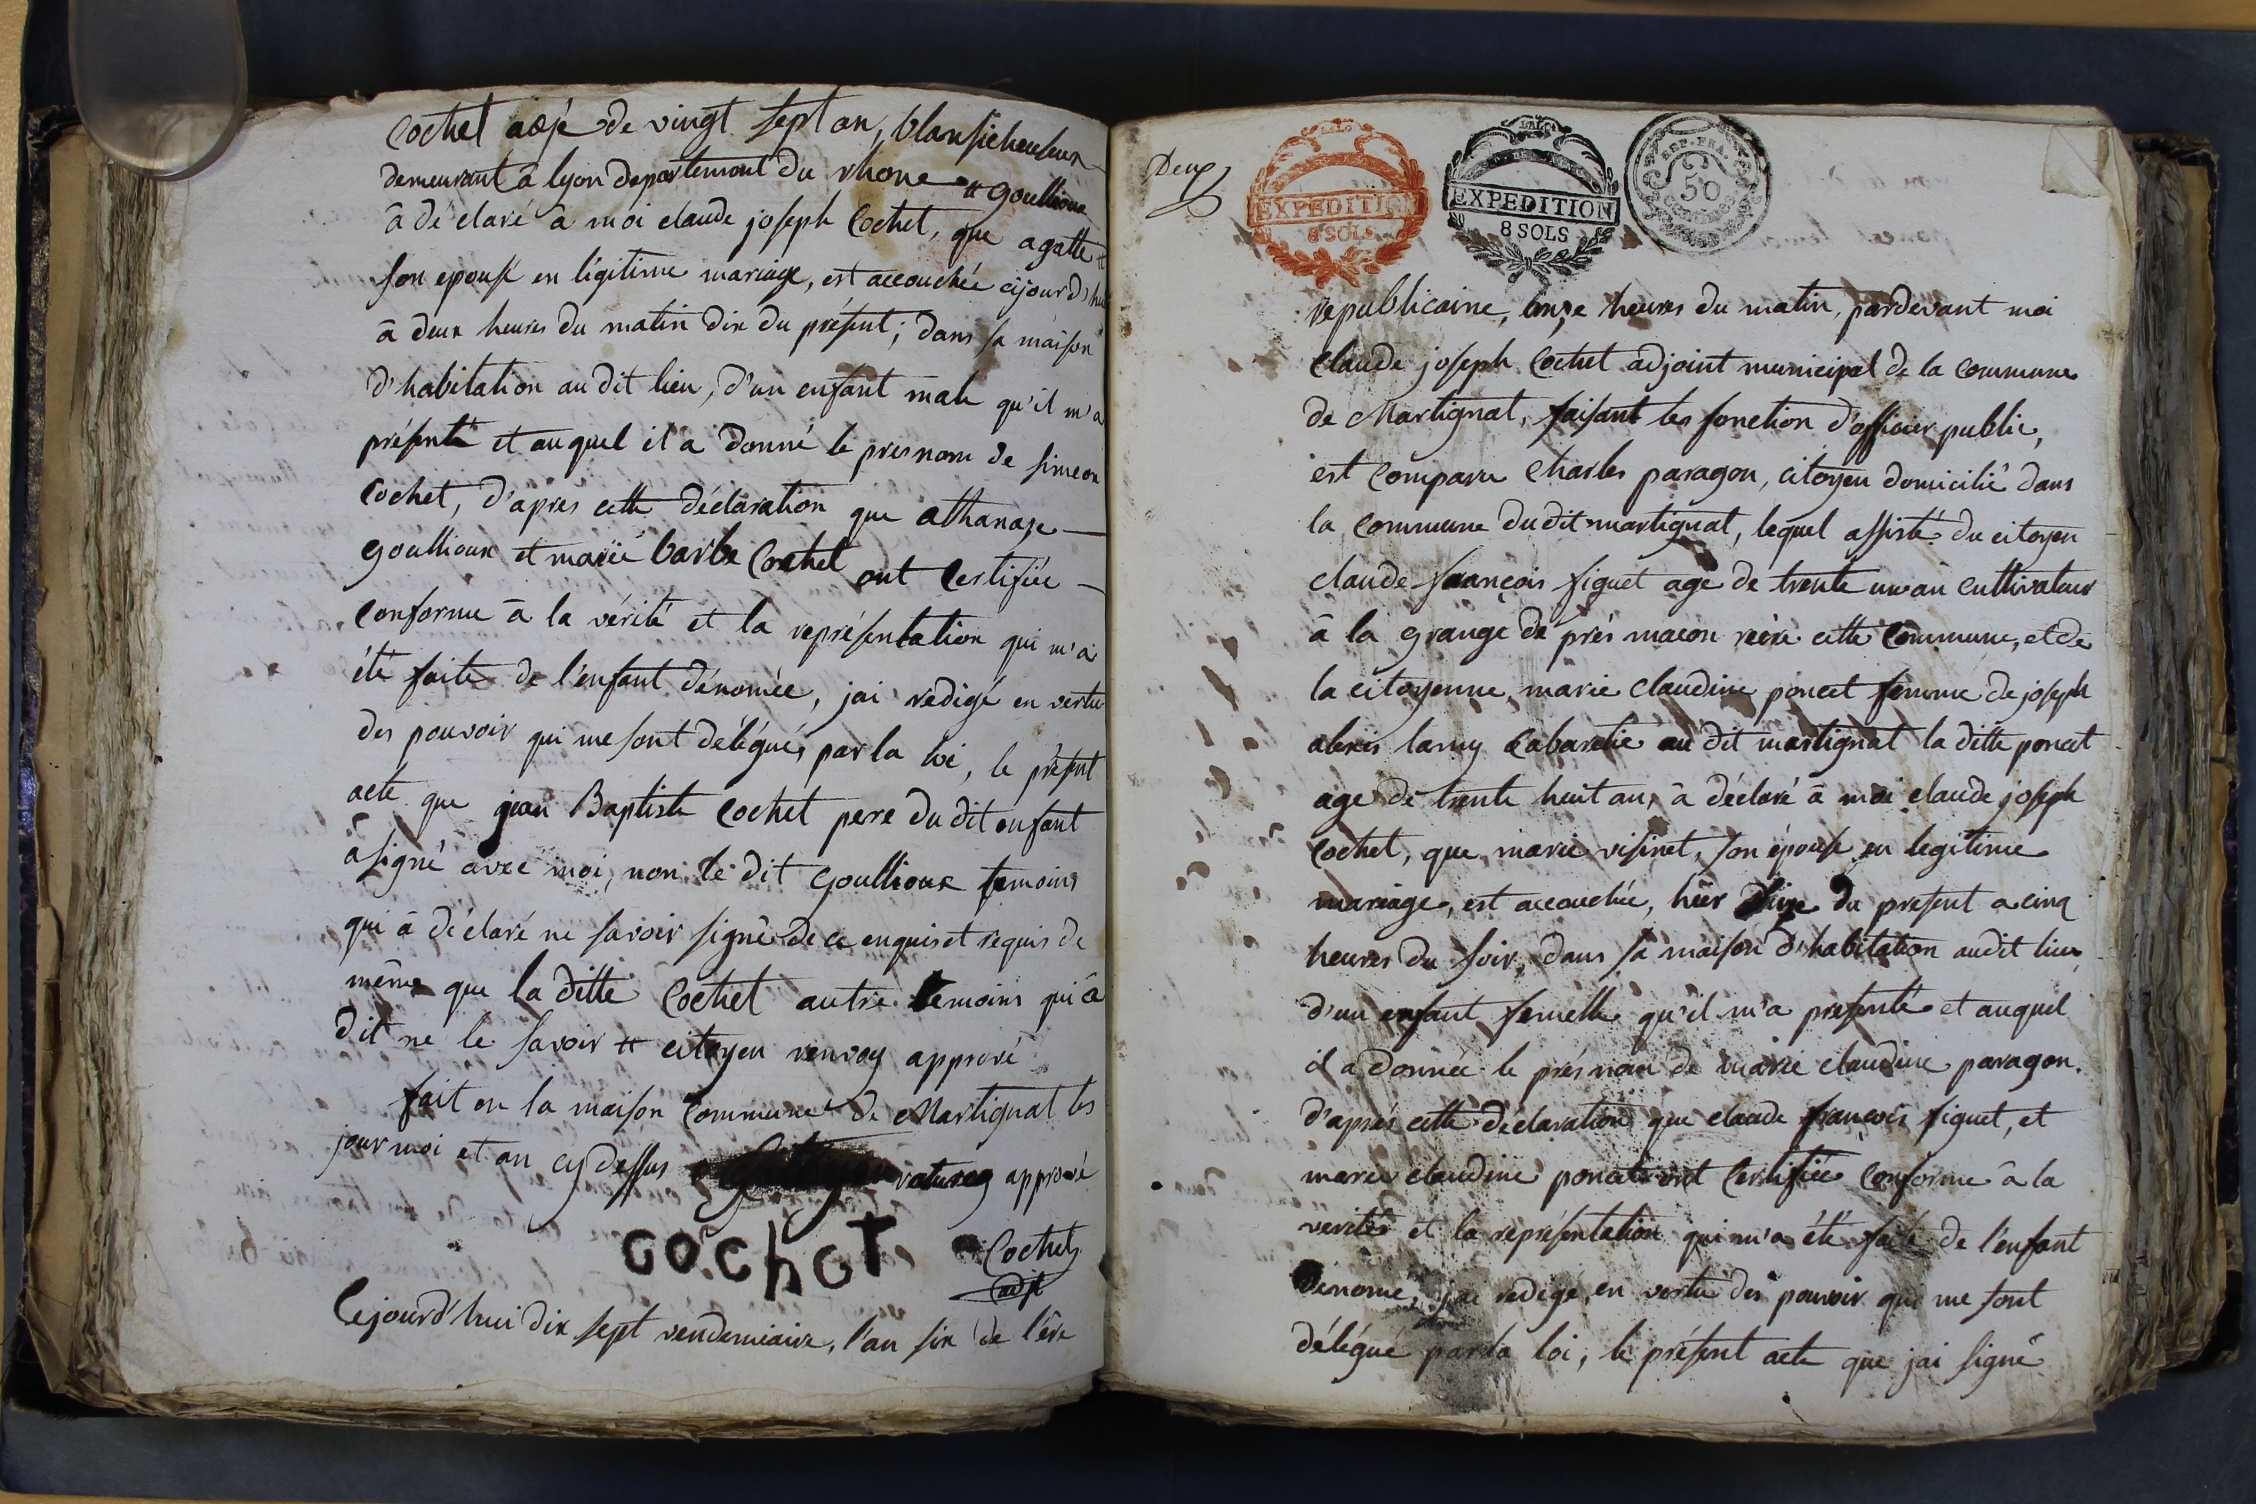 Cochet agé de vingt sept an, blanficheuseux
demeurant â lyon departement du rhone
# goullioux
â dé claré â moi claude joseph Cochet, que agatte #
son epouse en légitime mariage, est accouchée cijourd'hui
â deux heures du matin dix du présent; dans sa maison
d'habitation au dit lieu, d'un enfant male qu'il m'a
présenté et auquel il a donné le presnom de simeon
Cochet, d'apres cette déclaration que athanase
goullioux et marie barbe Cochet ont Certifiée
Conforme â la vérité et la représentation qui m'a
été faite de l'enfant dénomée, jai redigé en vertu
des pouvoir qui me sont délégués par la loi, le présent
acte que jean Baptiste Cochet pere du dit enfant
â signé avec moi, non le dit goullioux temoins
qui â déclaré ne savoir signé de ce enquis et requis de
même que la ditte Cochet autre temoins qui â
dit ne le savoir # citoyen renvoy apprové
fait en la maison Commune de Martignat les
jour moi et an cy dessus ratures apprové
COCHET
Cochet
adjt
Cejourd'hui dix sept vendemiaire, l'an six de l'ère
Deux
EXPEDITION
8 SOLS
EXPEDITION
8 SOLS
REP. FRA.
50
CENTIMES
republicaine, onze heures du matin, pardevant moi
Claude joseph Cochet adjoint municipal de la Commune
de Martignat, faisant les fonction d'officier public,
est Comparu Charles paragon, citoyen domicilié dans
la Commune du dit martignat, lequel assisté du citoyen
claude françois figuet age de trente un an cultivateur
â la grange de prés macon rière cette Commune, et de
la citoyenne marie Claudine poncet femme de joseph
alexis lamy Cabaretié au dit martignat la ditte poncet
age de trente huit an, â déclaré â moi claude joseph
Cochet, que marie visinet, son épouse en legitime
mariage, est accouchée, hier du present a cinq
heures du soir, dans sa maison d'habitation audit lieu
d'un enfant femelle qu'il m'a presenté et auquel
il a donnée le présnom de marie claudine paragon.
d'aprés cette déclaration que claude françois figuet, et
marie claudine poncet ont Certifiée Conforme â la
verité et la représentation qui m'a été faite de l'enfant
dénomé, jai redigé, en vertu des pouvoir que me sont
délégué par la loi, le présent acte que jai signé